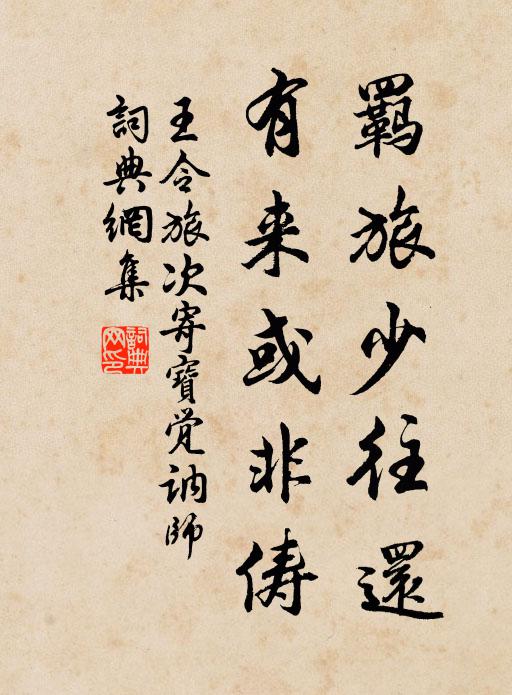 羈旅少往還
有来或非俦
王令旅次寄寶觉訥師
詞典網集
詞典网印